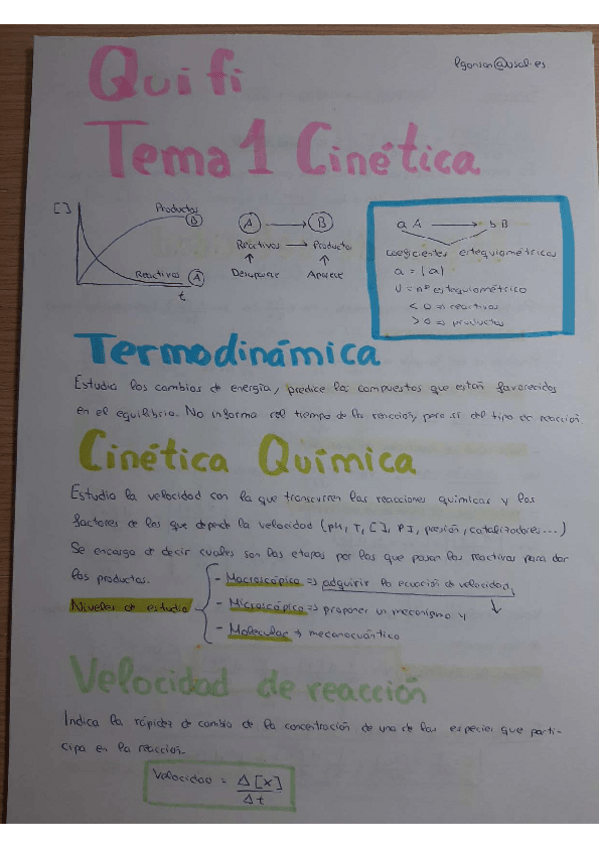 Quifi
Tema 1 Cinética
[ ]
Productos
B
Reactivos A
t
A → B
Reactivos → Producto
↑ ↑
Desaparece Aparece
a A → b B
coeficientes estequiométricos
a = |a|
ν = nº estequiométrico
< 0 => reactivos
> 0 => productos
Termodinámica
Estudia los cambios de energía, predice los compuestos que están favorecidos
en el equilibrio. No informa del tiempo de la reacción, pero sí del tipo de reacción.
Cinética Química
Estudia la velocidad con la que transcurren las reacciones químicas y los
factores de los que depende la velocidad (pH, T, [ ], PI, presión, catalizadores...)
Se encarga de decir cuales son las etapas por las que pasan los reactivos para dar
los productos.
Niveles de estudio
- Macroscópico => adquirir la ecuación de velocidad,
- Microscópico => proponer un mecanismo y
- Molecular → mecanocuántico
Velocidad de reacción
Indica la rápidez de cambio de la concentración de una de las especies que parti-
cipa en la reacción.
Velocidad = Δ[x] / Δt